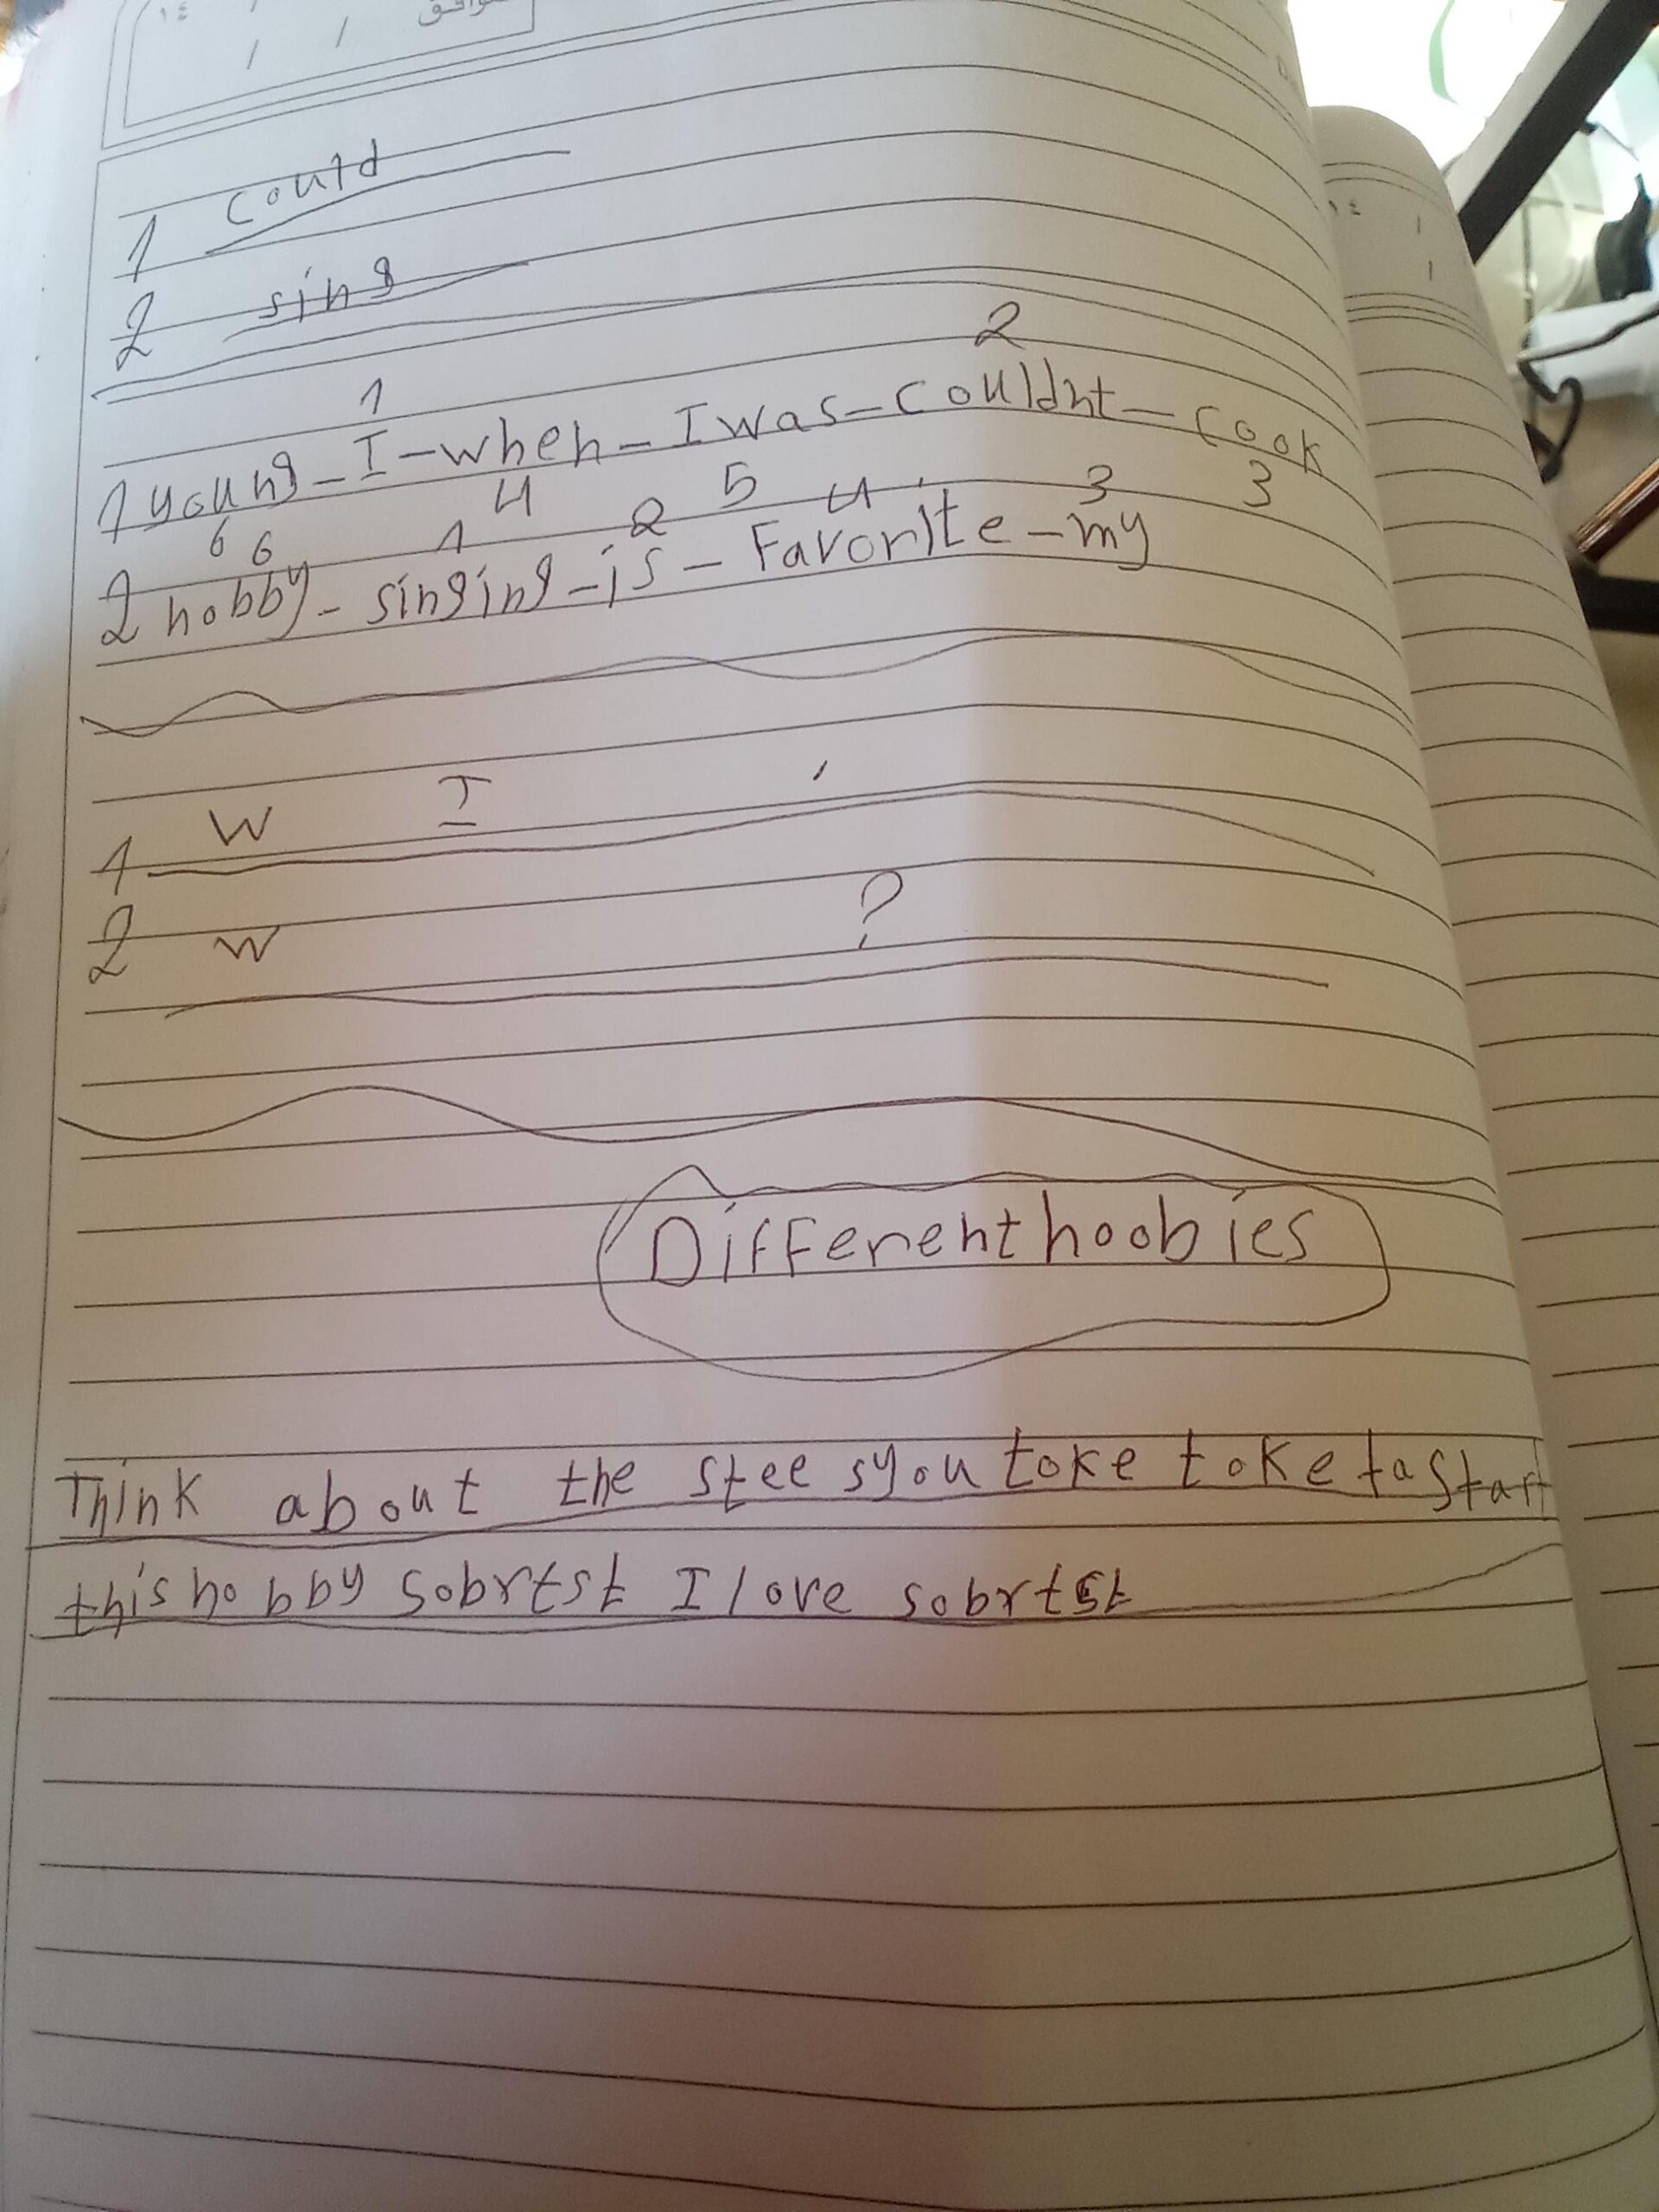 ١٤ / / موافق
1 could
2 sing
1 2
1 young - I - when - I was - couldnt - cook
6 4 5 3
6 1 2 4 3
2 hobby - singing - is - Favorite - my
1 W I ,
2 W ?
Different hoobies
Think about the stee syou toke toke ta Start
this hobby sobrtst I love sobrtst